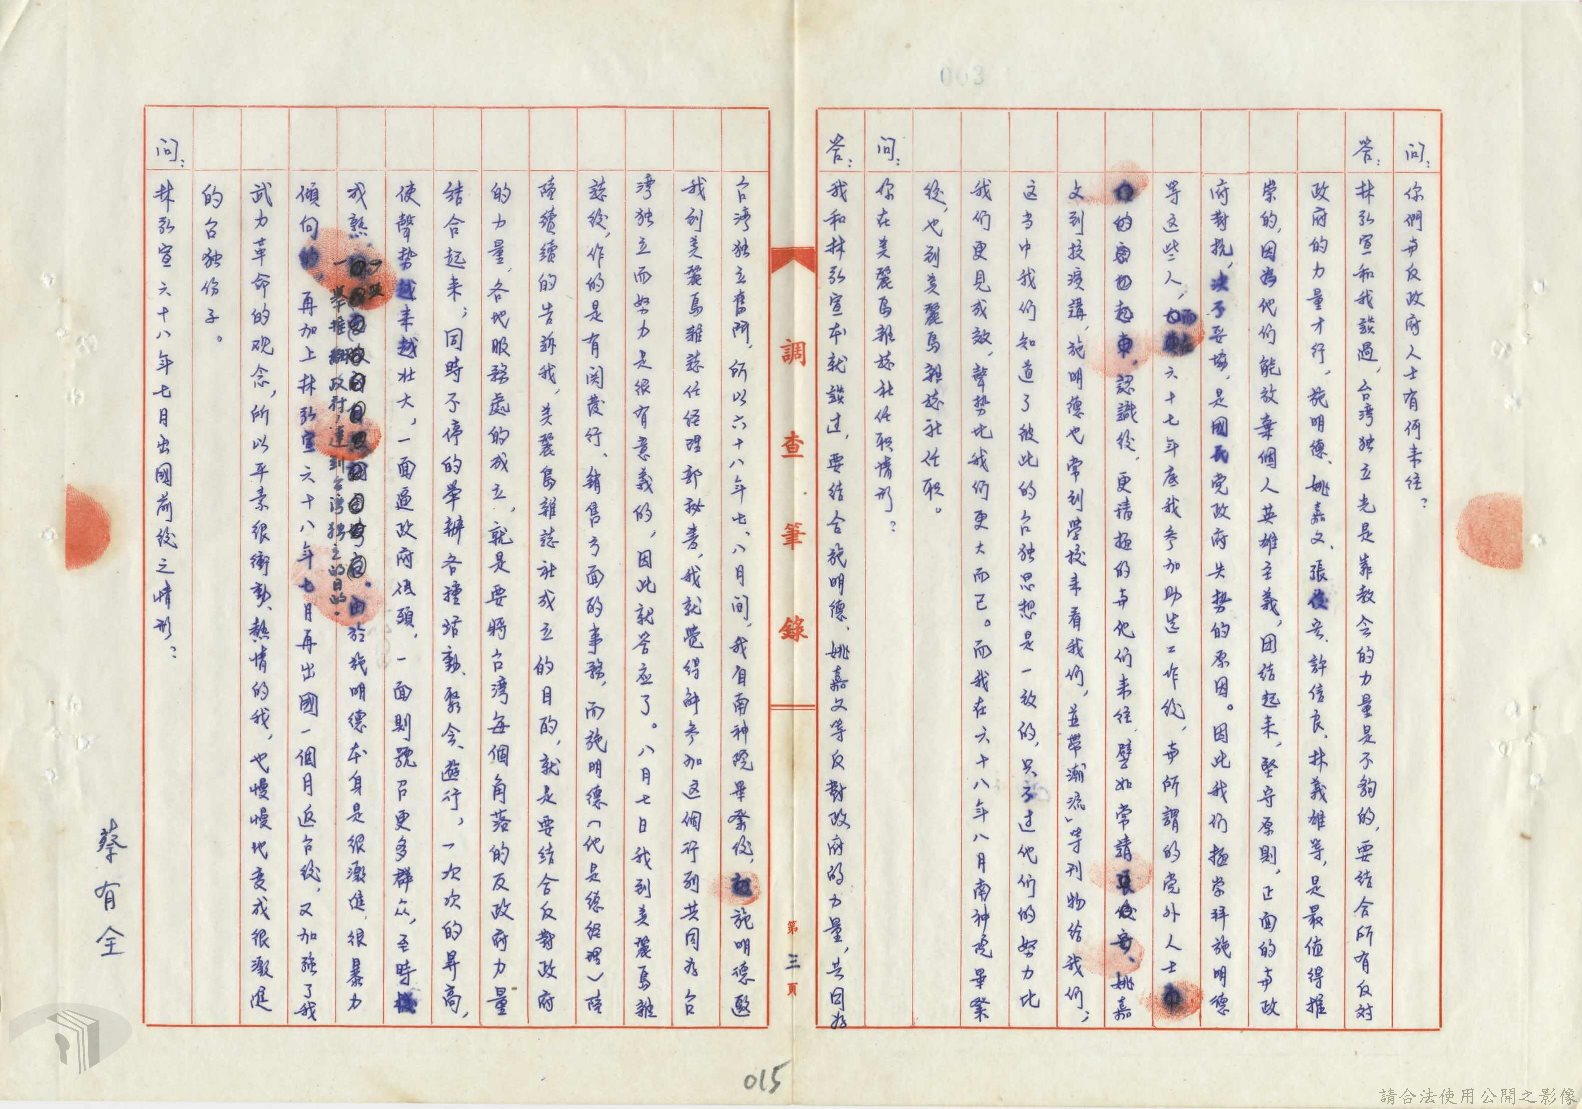 003
問：你們与反政府人士有何来往？
答：林弘宣和我談過，台湾独立光是靠教会的力量是不夠的，要結合所有反对
政府的力量才行，施明德、姚嘉文、張俊宏、許信良、林義雄等，是最值得推
崇的，因為他們能放棄個人英雄主義，团结起来，堅守原則，正面的与政
府對抗，决不妥協，是國民党政府失势的原因。因此我们極崇拜施明德
等这些人，而六十七年底我参加助选工作後，与所謂的党外人士
的認識後，更積極的与他们来往，譬如常請、姚嘉
文到校演講，施明德也常到学校来看我们，並帶「潮流」等刊物给我们，
这当中我们知道了彼此的台独思想是一致的，只不过他们的努力比
我们更見成效，聲势比我们更大而已。而我在六十八年八月南神畢業
後，也到美麗島雜誌社任职。
問：你在美麗島雜誌社任职情形？
答：我和林弘宣本就談过，要结合施明德、姚嘉文等反對政府的力量，共同為
調查筆錄
第三頁
台湾独立奮鬥，所以六十八年七、八月间，我自南神院畢業後，施明德邀
我到美麗島雜誌任经理部秘書，我就覺得能参加这個行列共同為台
湾独立而努力是很有意義的，因此就答应了。八月七日我到美麗島雜
誌後，作的是有関發行、銷售方面的事務，而施明德（他是總经理）陸
陸續續的告訴我，美麗島雜誌社成立的目的，就是要结合反對政府
的力量，各地服務處的成立，就是要將台湾每個角落的反政府力量
结合起来；同時不停的举辦各種活動、聚会、遊行，一次次的昇高，
使聲势越来越壮大，一面逼政府低頭，一面則號召更多群众，至時機
成熟，一举推翻政府，達到台湾独立的目的。由於施明德本身是很激進、很暴力
傾向的，再加上林弘宣六十八年七月再出國一個月返台後，又加強了我
武力革命的观念，所以平素很衝動、熱情的我，也慢慢地变成很激進
的台独份子。
問：林弘宣六十八年七月出國前後之情形？
蔡有全
015
請合法使用公開之影像